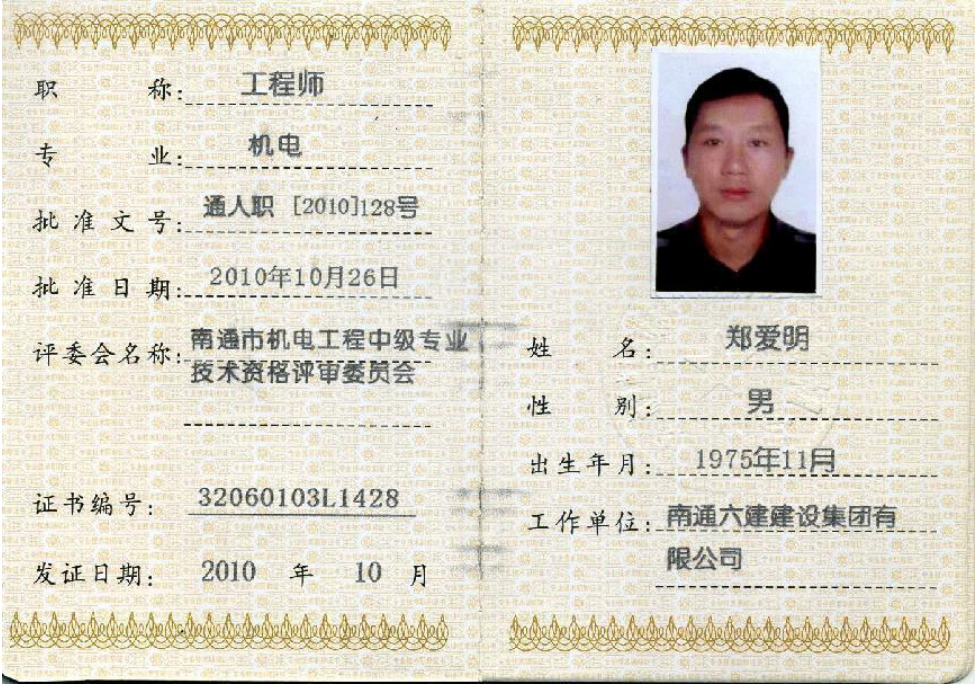 职称：工程师
专业：机电
批准文号：通人职 [2010]128号
批准日期：2010年10月26日
评委会名称：南通市机电工程中级专业
技术资格评审委员会
证书编号：32060103L1428
发证日期：2010 年 10 月
姓名：郑爱明
性别：男
出生年月：1975年11月
工作单位：南通六建建设集团有
限公司